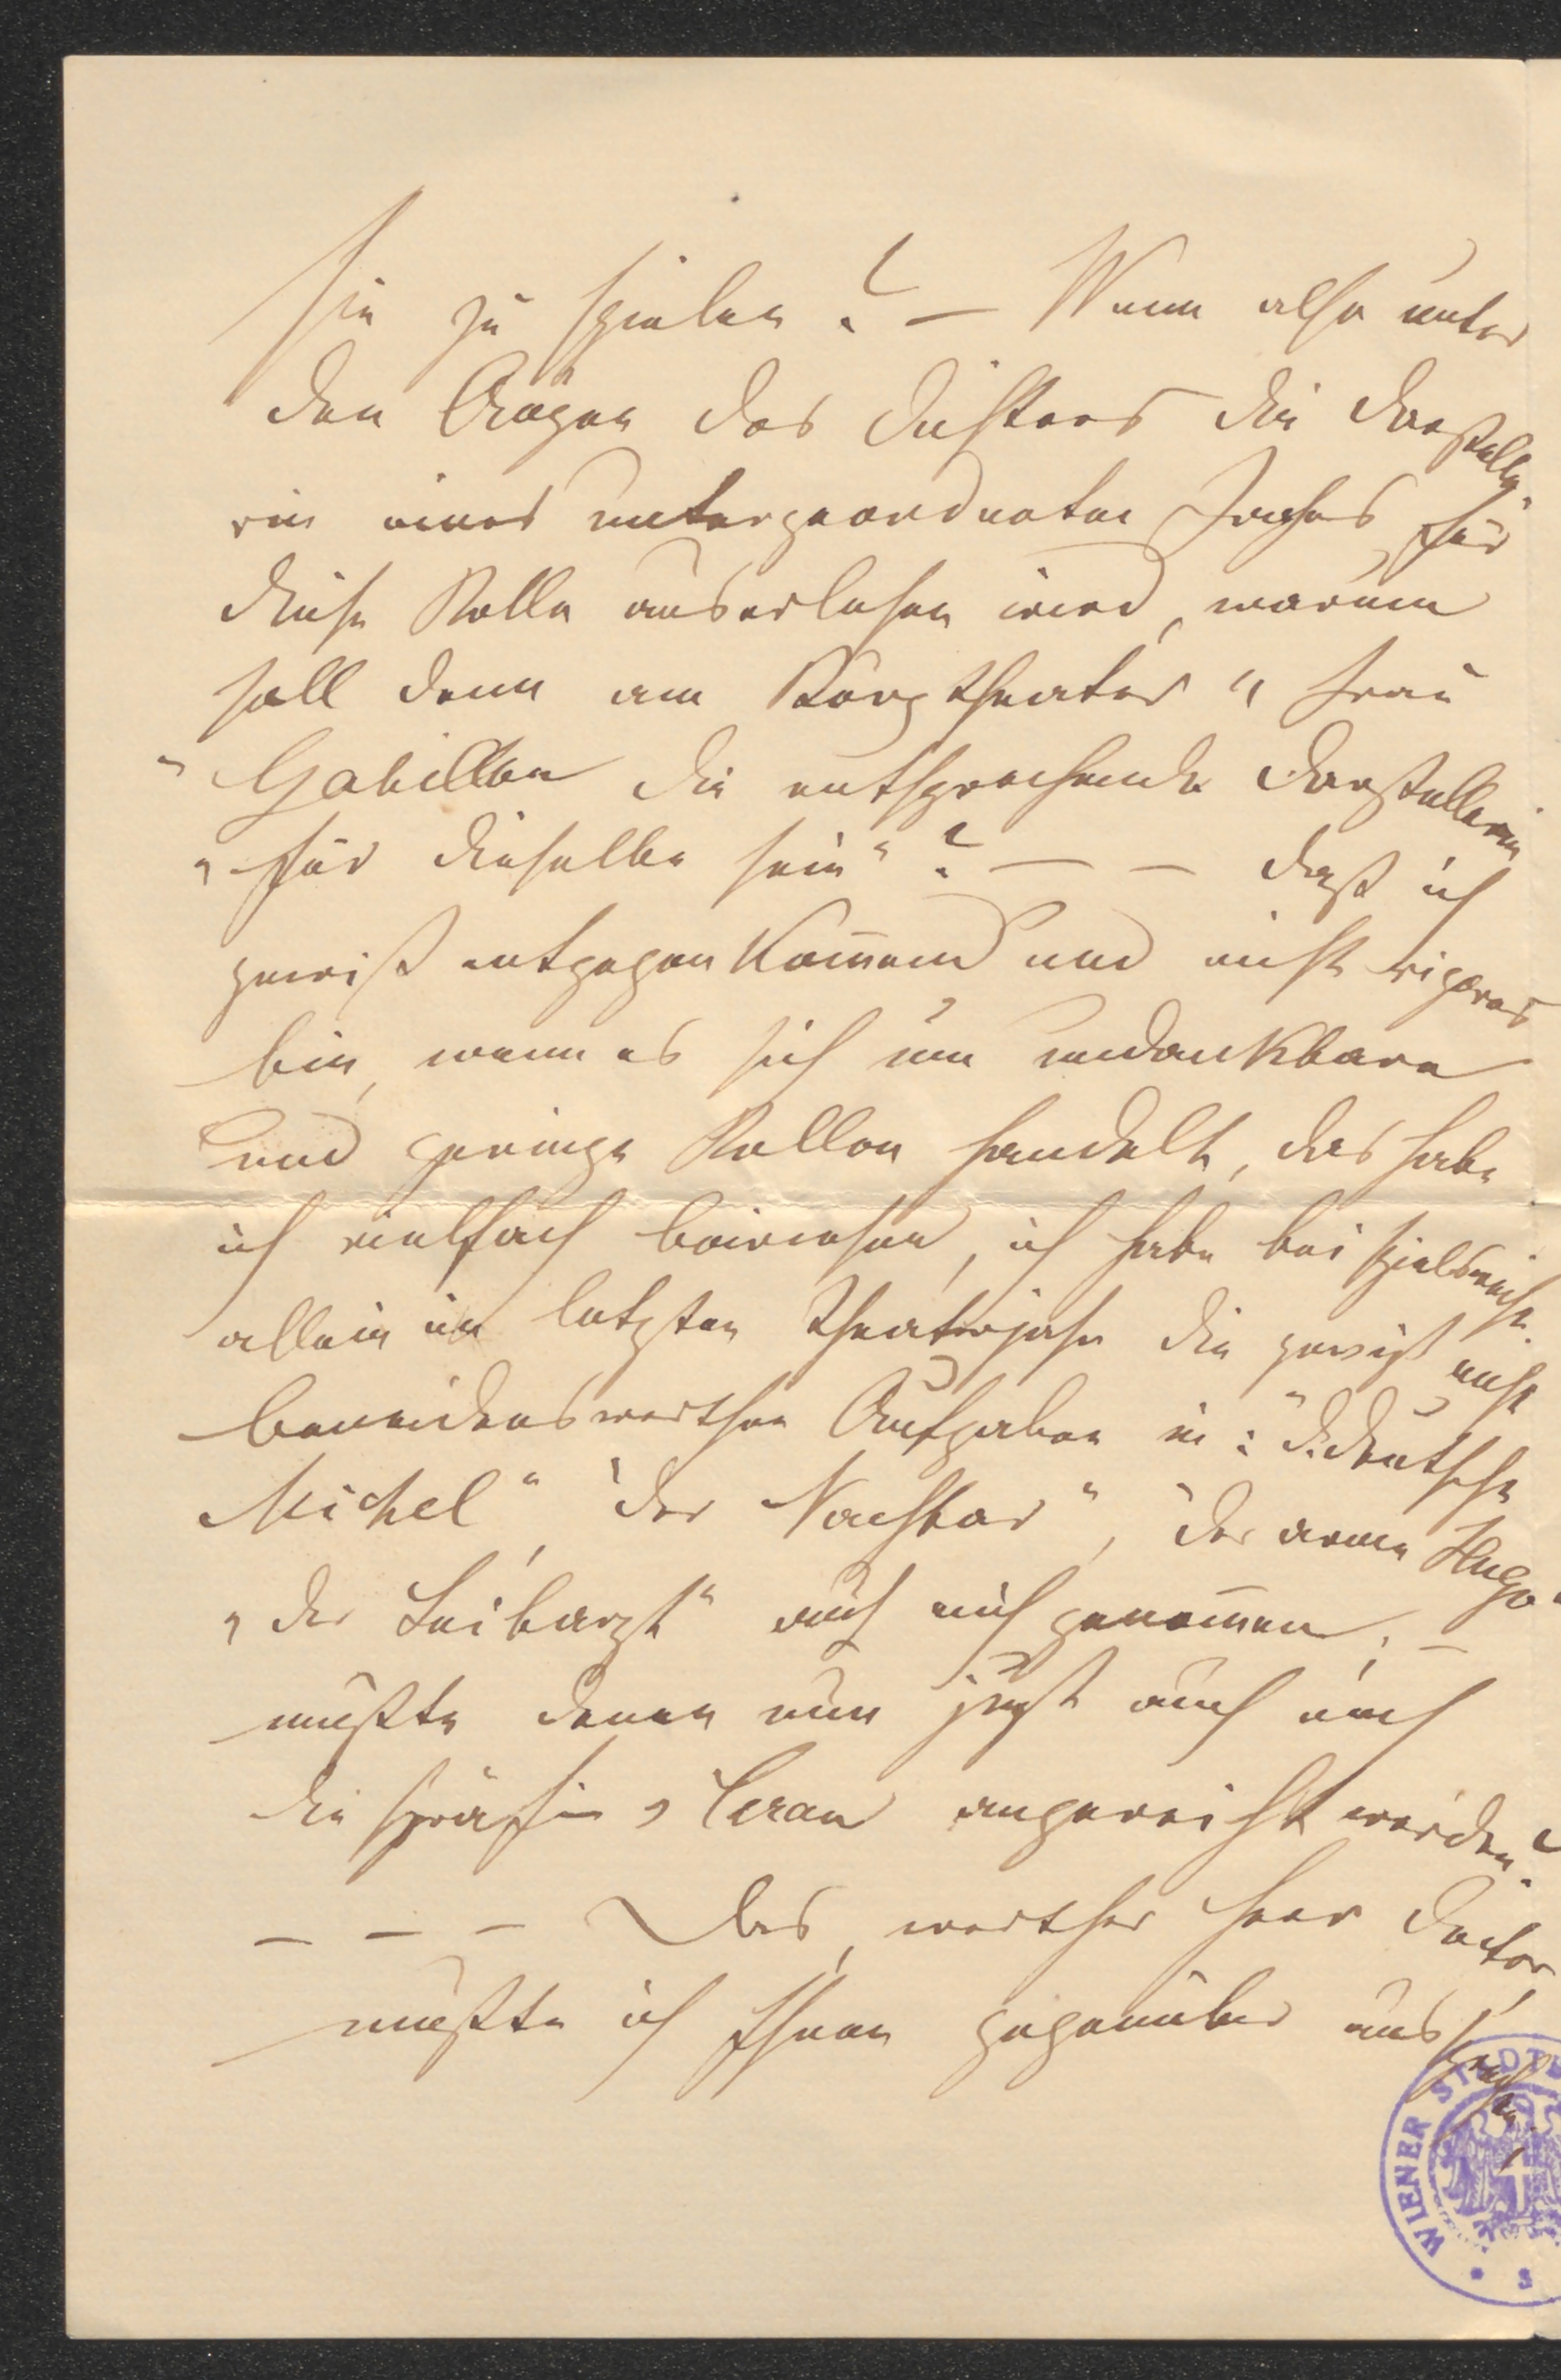 sie zu spielen? — Wenn also unter
den Augen des Dichters die Darstelle-
rin eines untergeordneten Faches für
diese Rolle auserlesen wird, warum
soll denn am Burgtheater "Frau
"Gabillon die entsprechende Darstellerin
"für dieselbe sein"? — — Daß ich
gewiß entgegenkom̅end und nicht rigoros
bin, wenn es sich um undankbare
und geringe Rollen handelt, das habe
ich vielfach bewiesen, ich habe beispielsweise
allein im letzten Theaterjahr die gewiß nicht
beneidenswerthen Aufgaben in: "D. deutsche
Michel", "der Nachbar", "der arme Hugo"
"der Leibarzt" auf mich genom̅en, —
mußte denen nun just auch noch
die angereiht werden?
— — — Das, werther Herr Doctor,
mußte ich Ihnen gegenüber aussprechen,
WIENER STADT